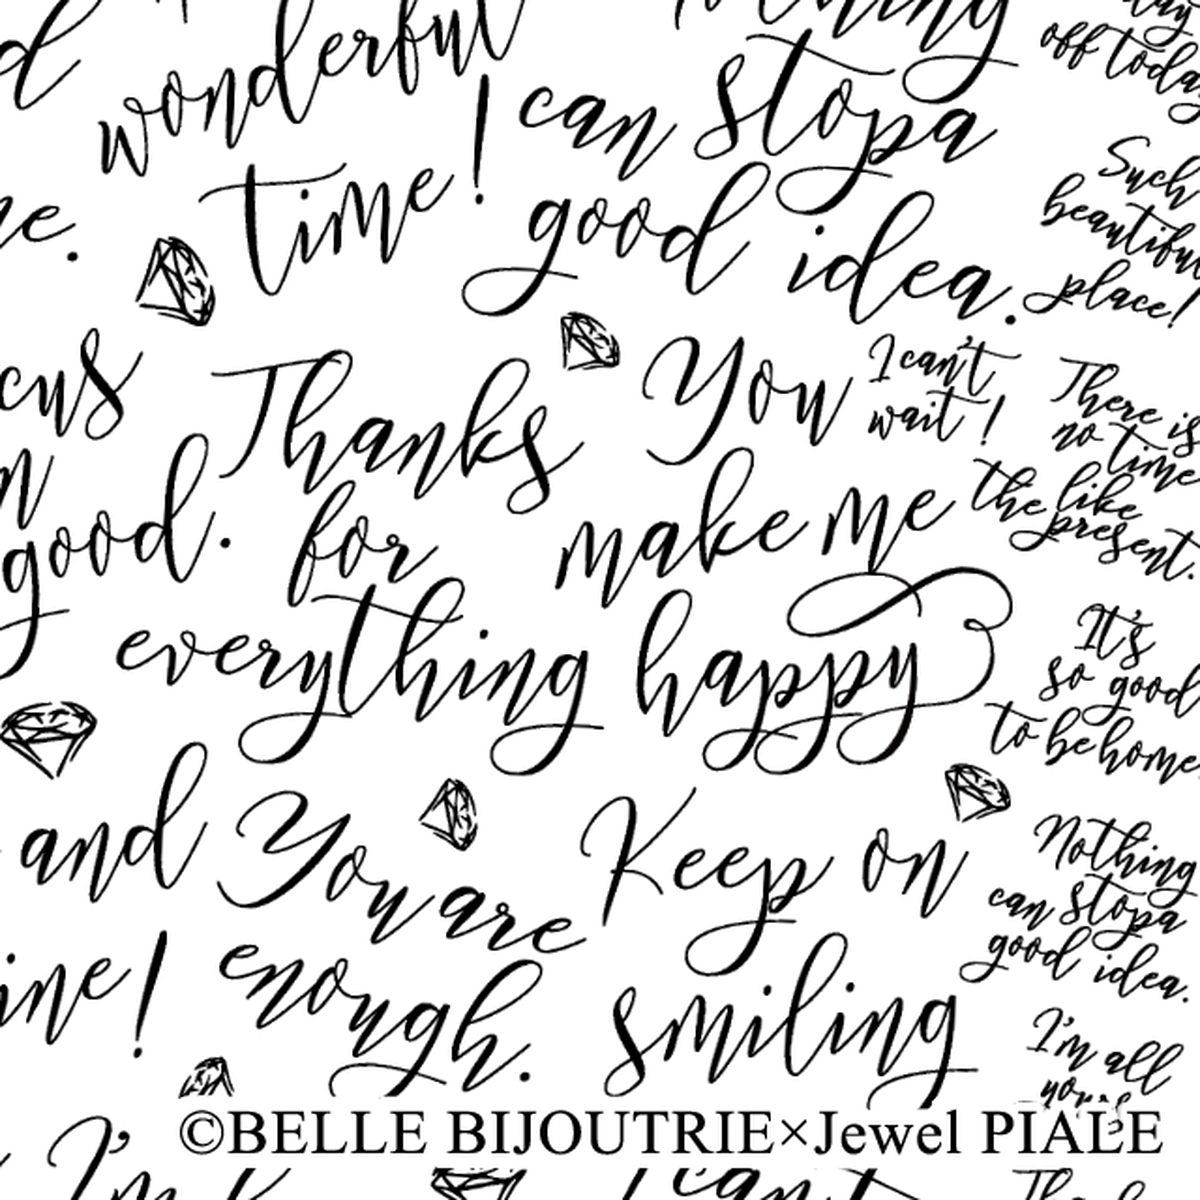 wonderful
time!
can stop a
good idea.
day
off today
Such
beautiful
place!
Thanks
for
everything
You
make me
happy
I can't
wait!
There is
no time
the like
present.
good.
It's
so good
to be home
and
You are
enough.
Keep on
smiling
Nothing
can stop a
good idea.
I'm all
yours
©BELLE BIJOUTRIE×Jewel PIALE
I'm
can't